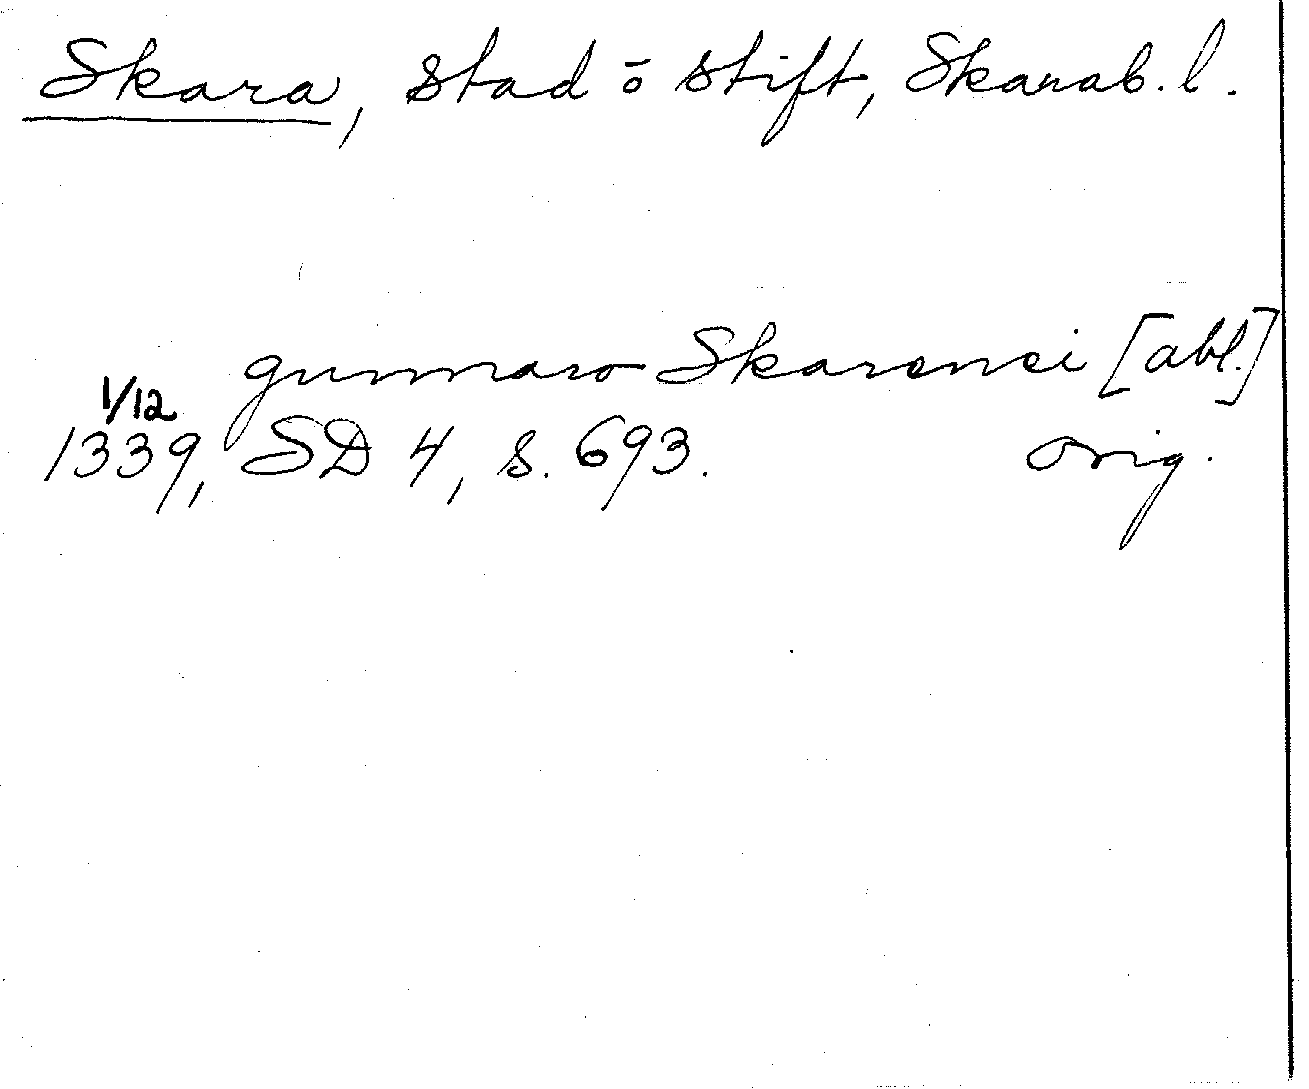 Skara, stad ō stift, Skarab. l.
gunnaro Skarensi [abl.]
1/12
1339, SD 4, s. 693. orig.